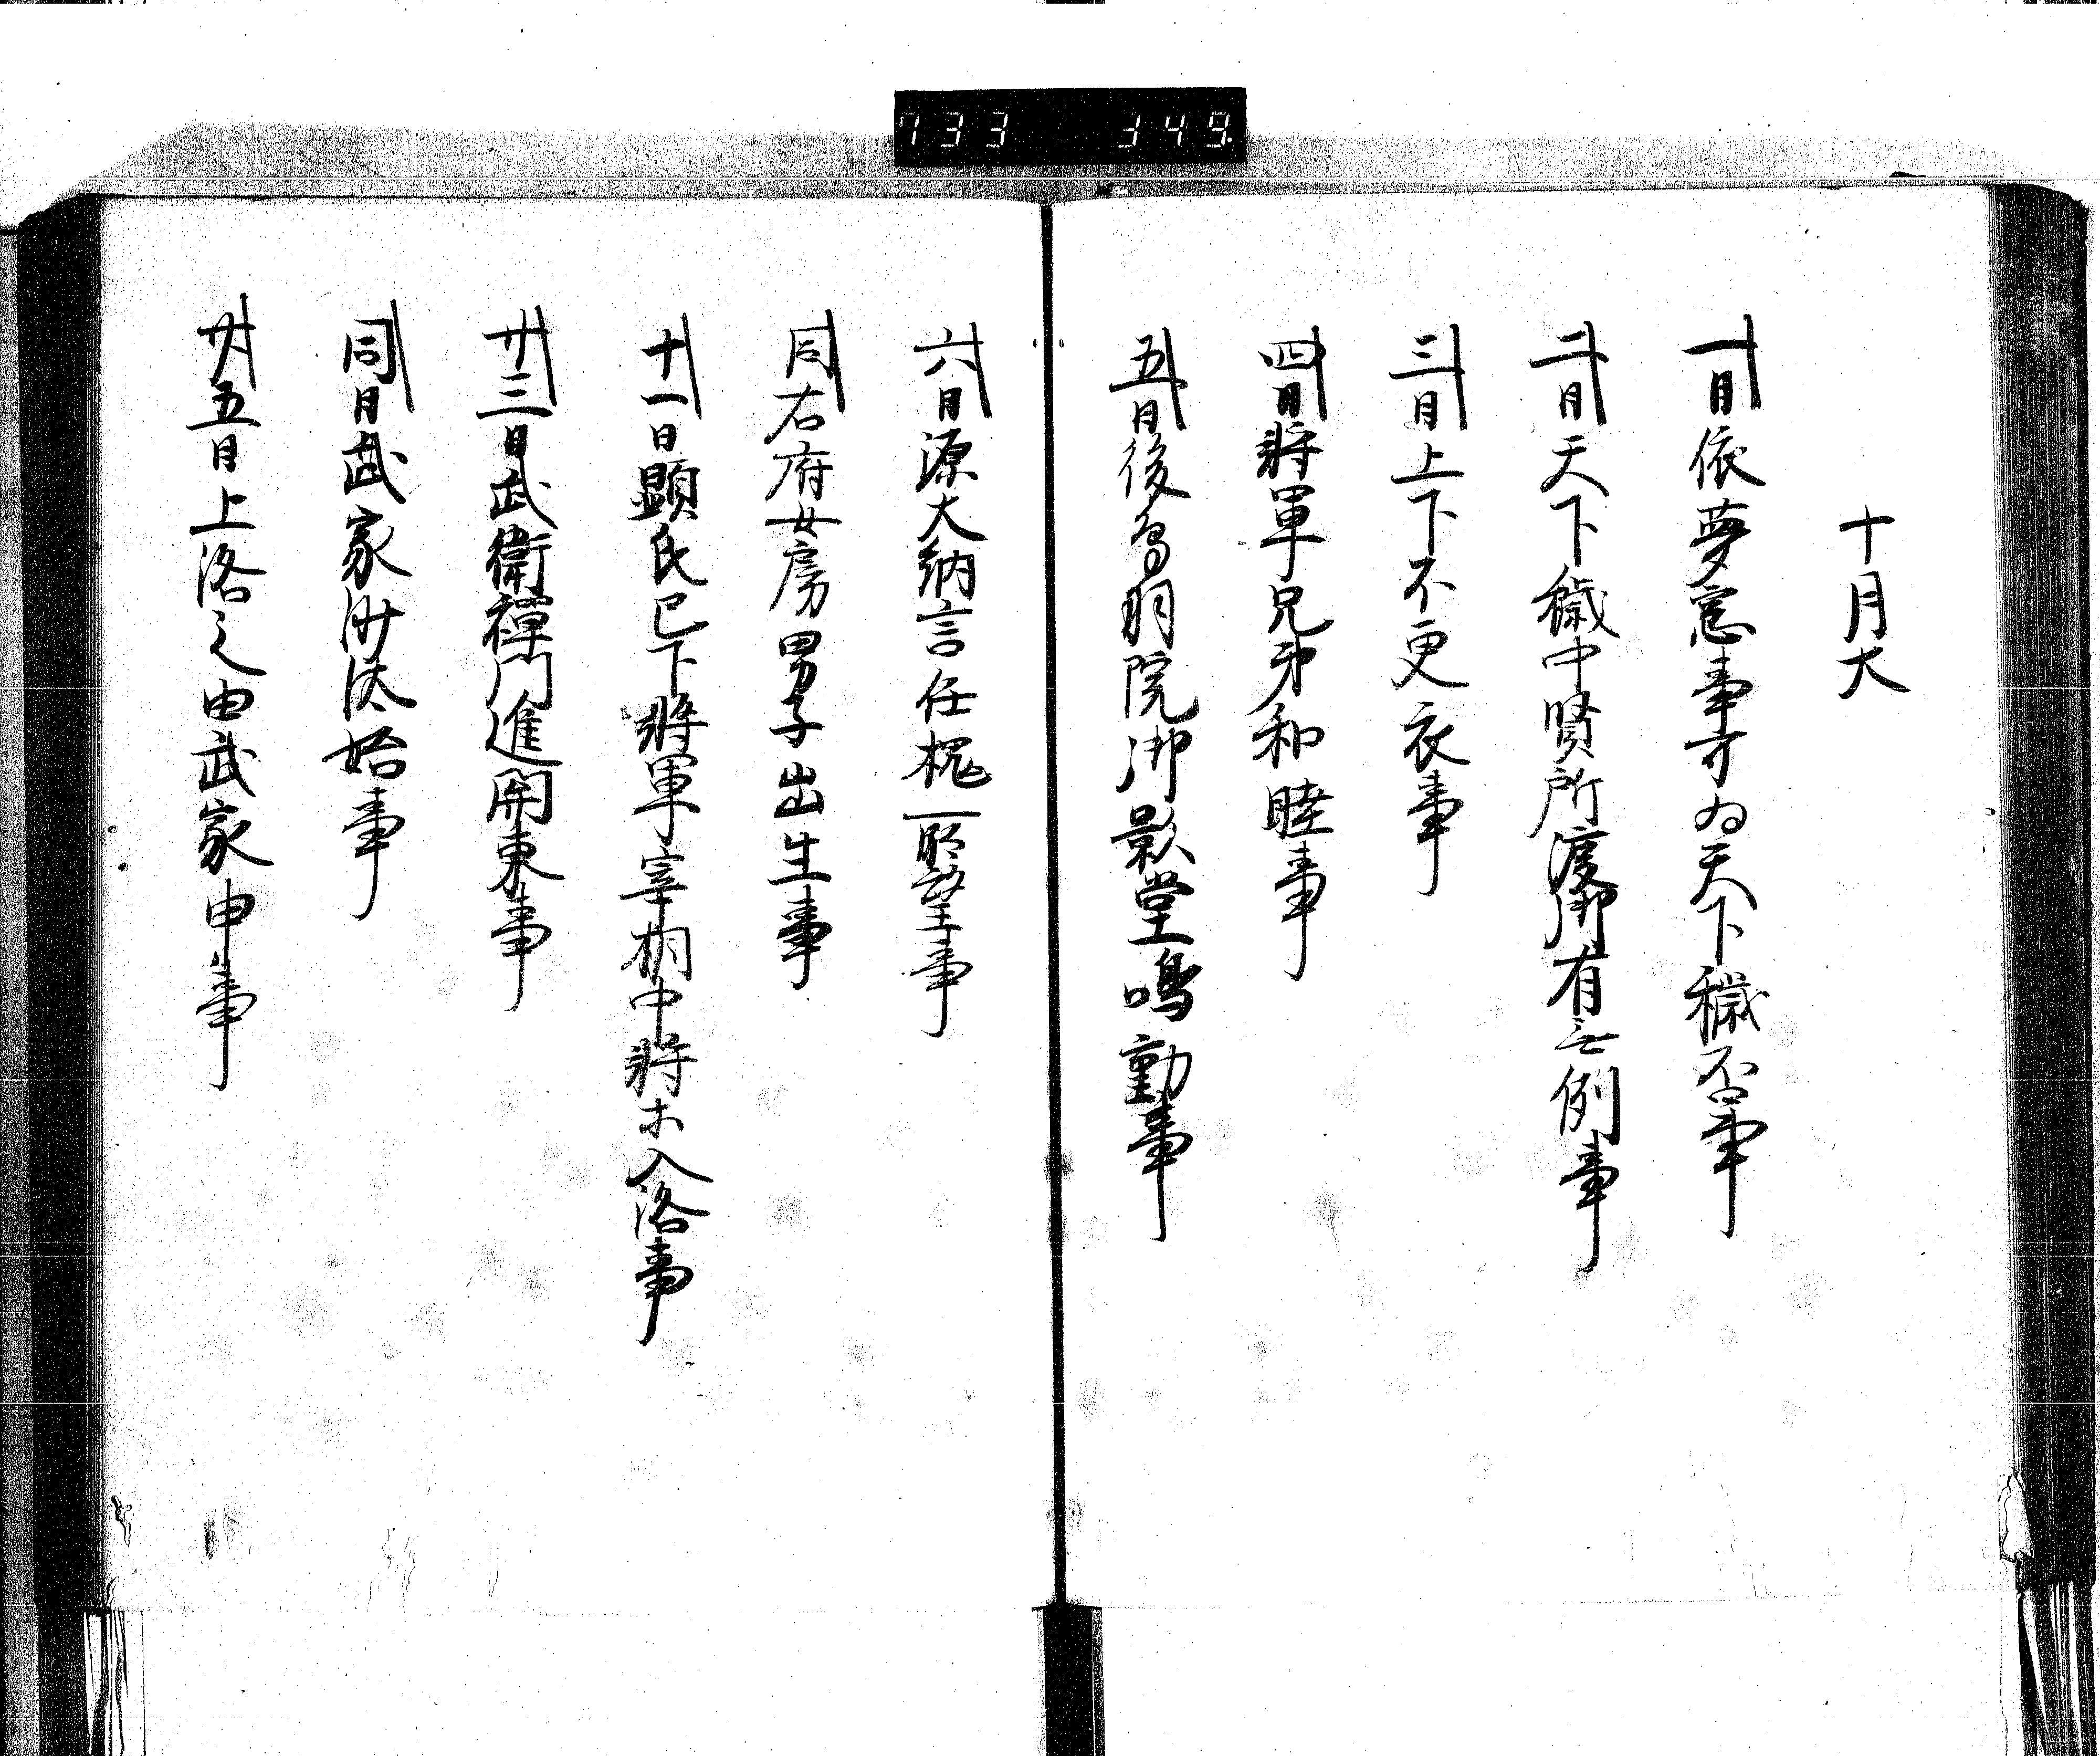 733 349
十月大
一日依夢窓事才為天下穢否事
二日天下穢中賢所渡御有無例事
三日上下不更衣事
四日将軍兄弟和睦事
五日後鳥羽院御影堂鳴動事
六日源大納言任槐所望事
同右府女房男子出生事
十一日顕氏已下将軍宰相中将木入洛事
廿三日武衛禅門進関東事
同日武家沙汰始事
廿五日上洛之由武家申事